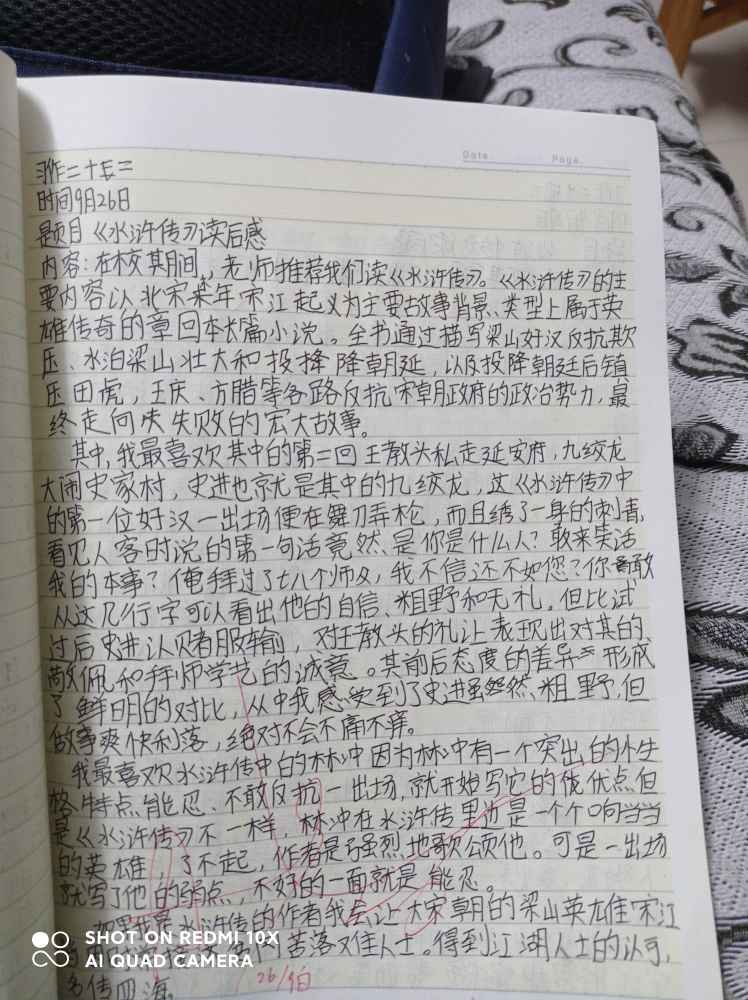 Date Page
习作二十五二
时间9月26日
题目《水浒传》读后感
内容:在校其间,老师推荐我们读《水浒传》。《水浒传》的主
要内容以北宋末年宋江起义为主要故事背景、类型上属于英
雄传奇的章回本长篇小说。全书通过描写梁山好汉反抗欺
压、水泊梁山壮大和投降朝廷,以及投降朝廷后镇
压田虎,王庆、方腊等各路反抗宋朝政府的政治势力,最
终走向失败的宏大故事。
其中,我最喜欢其中的第二回王教头私走延安府,九纹龙
大闹史家村,史进也就是其中的九纹龙,这《水浒传》中
的第一位好汉一出场便在舞刀弄枪,而且绣了一身的刺青,
看见人客时说的第一句话竟然是你是什么人?敢来笑话
我的本事?俺拜过了七八个师父,我不信还不如您?你敢
从这几行字可以看出他的自信、粗野和无礼,但比试
过后史进认赌服输,对王教头的礼让表现出对其的
敬佩和拜师学艺的诚意。其前后态度的差异形成
了鲜明的对比,从中我感受到了史进虽然粗野,但
做事爽快利落,绝对不会不痛不痒。
我最喜欢水浒传中的林冲因为林冲有一个突出的性
格特点能忍、不敢反抗一出场,就开始写它的优点但
是《水浒传》不一样,林冲在水浒传里边是一个响当当
的英雄,了不起,作者是强烈地歌颂他。可是一出场
就写了他的弱点,不好的一面就是能忍。
如果我是水浒传的作者我会让大宋朝的梁山英雄宋江
苦落难人士。得到江湖人士的认可,
名传四海
26/伯
SHOT ON REDMI 10X
AI QUAD CAMERA